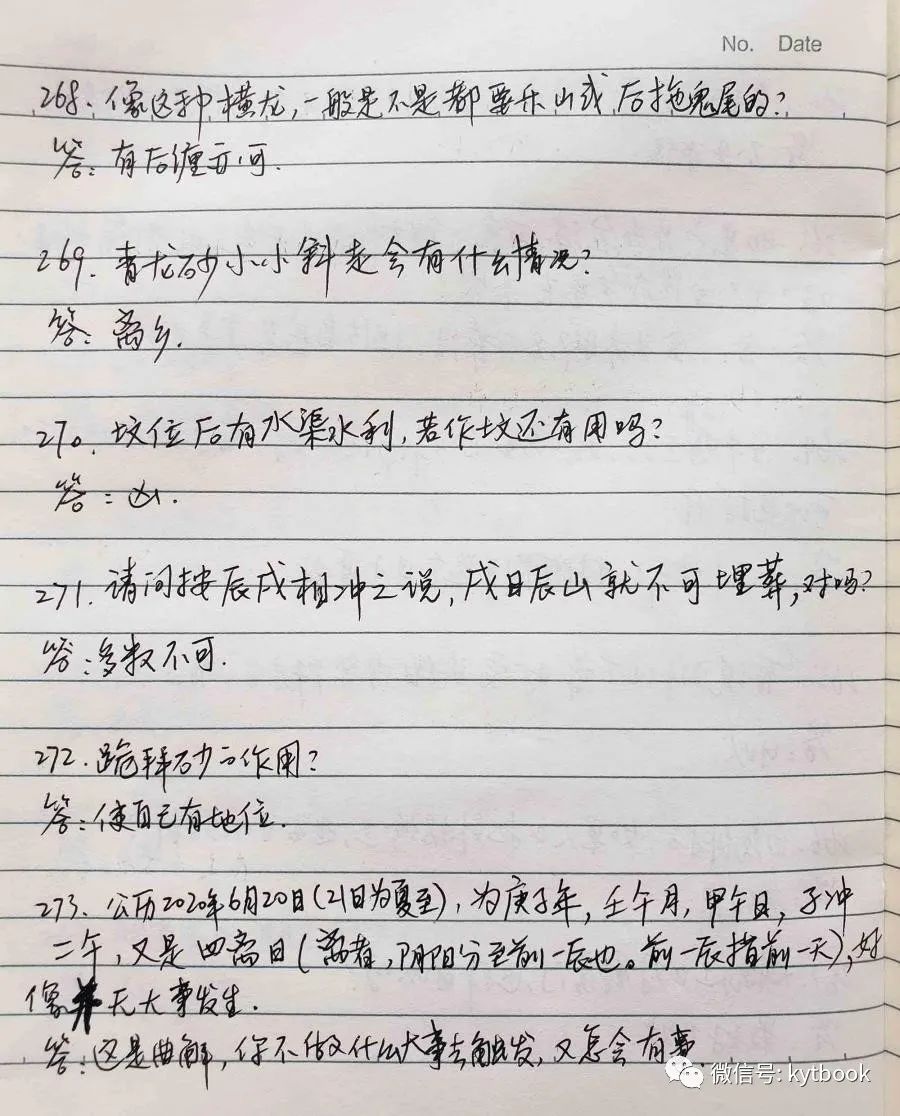 No. Date
268. 像这种横龙,一般是不是都要乐山或后拖鬼尾的?
答: 有后缠亦可.
269. 青龙砂小小斜走会有什么情况?
答: 离乡.
270. 坟位后有水渠水利,若作坟还有用吗?
答: 凶.
271. 请问按辰戌相冲之说,戌日辰山就不可埋葬,对吗?
答: 多数不可.
272. 跪拜砂之作用?
答: 使自己有地位.
273. 公历2020年6月20日(21日为夏至),为庚子年,壬午月,甲午日,子冲
二午,又是四离日(离者,阴阳分至前一辰也。前一辰指前一天),好
像并无大事发生.
答: 这是曲解,你不做什么大事去触发,又怎会有事.
微信号: kytbook